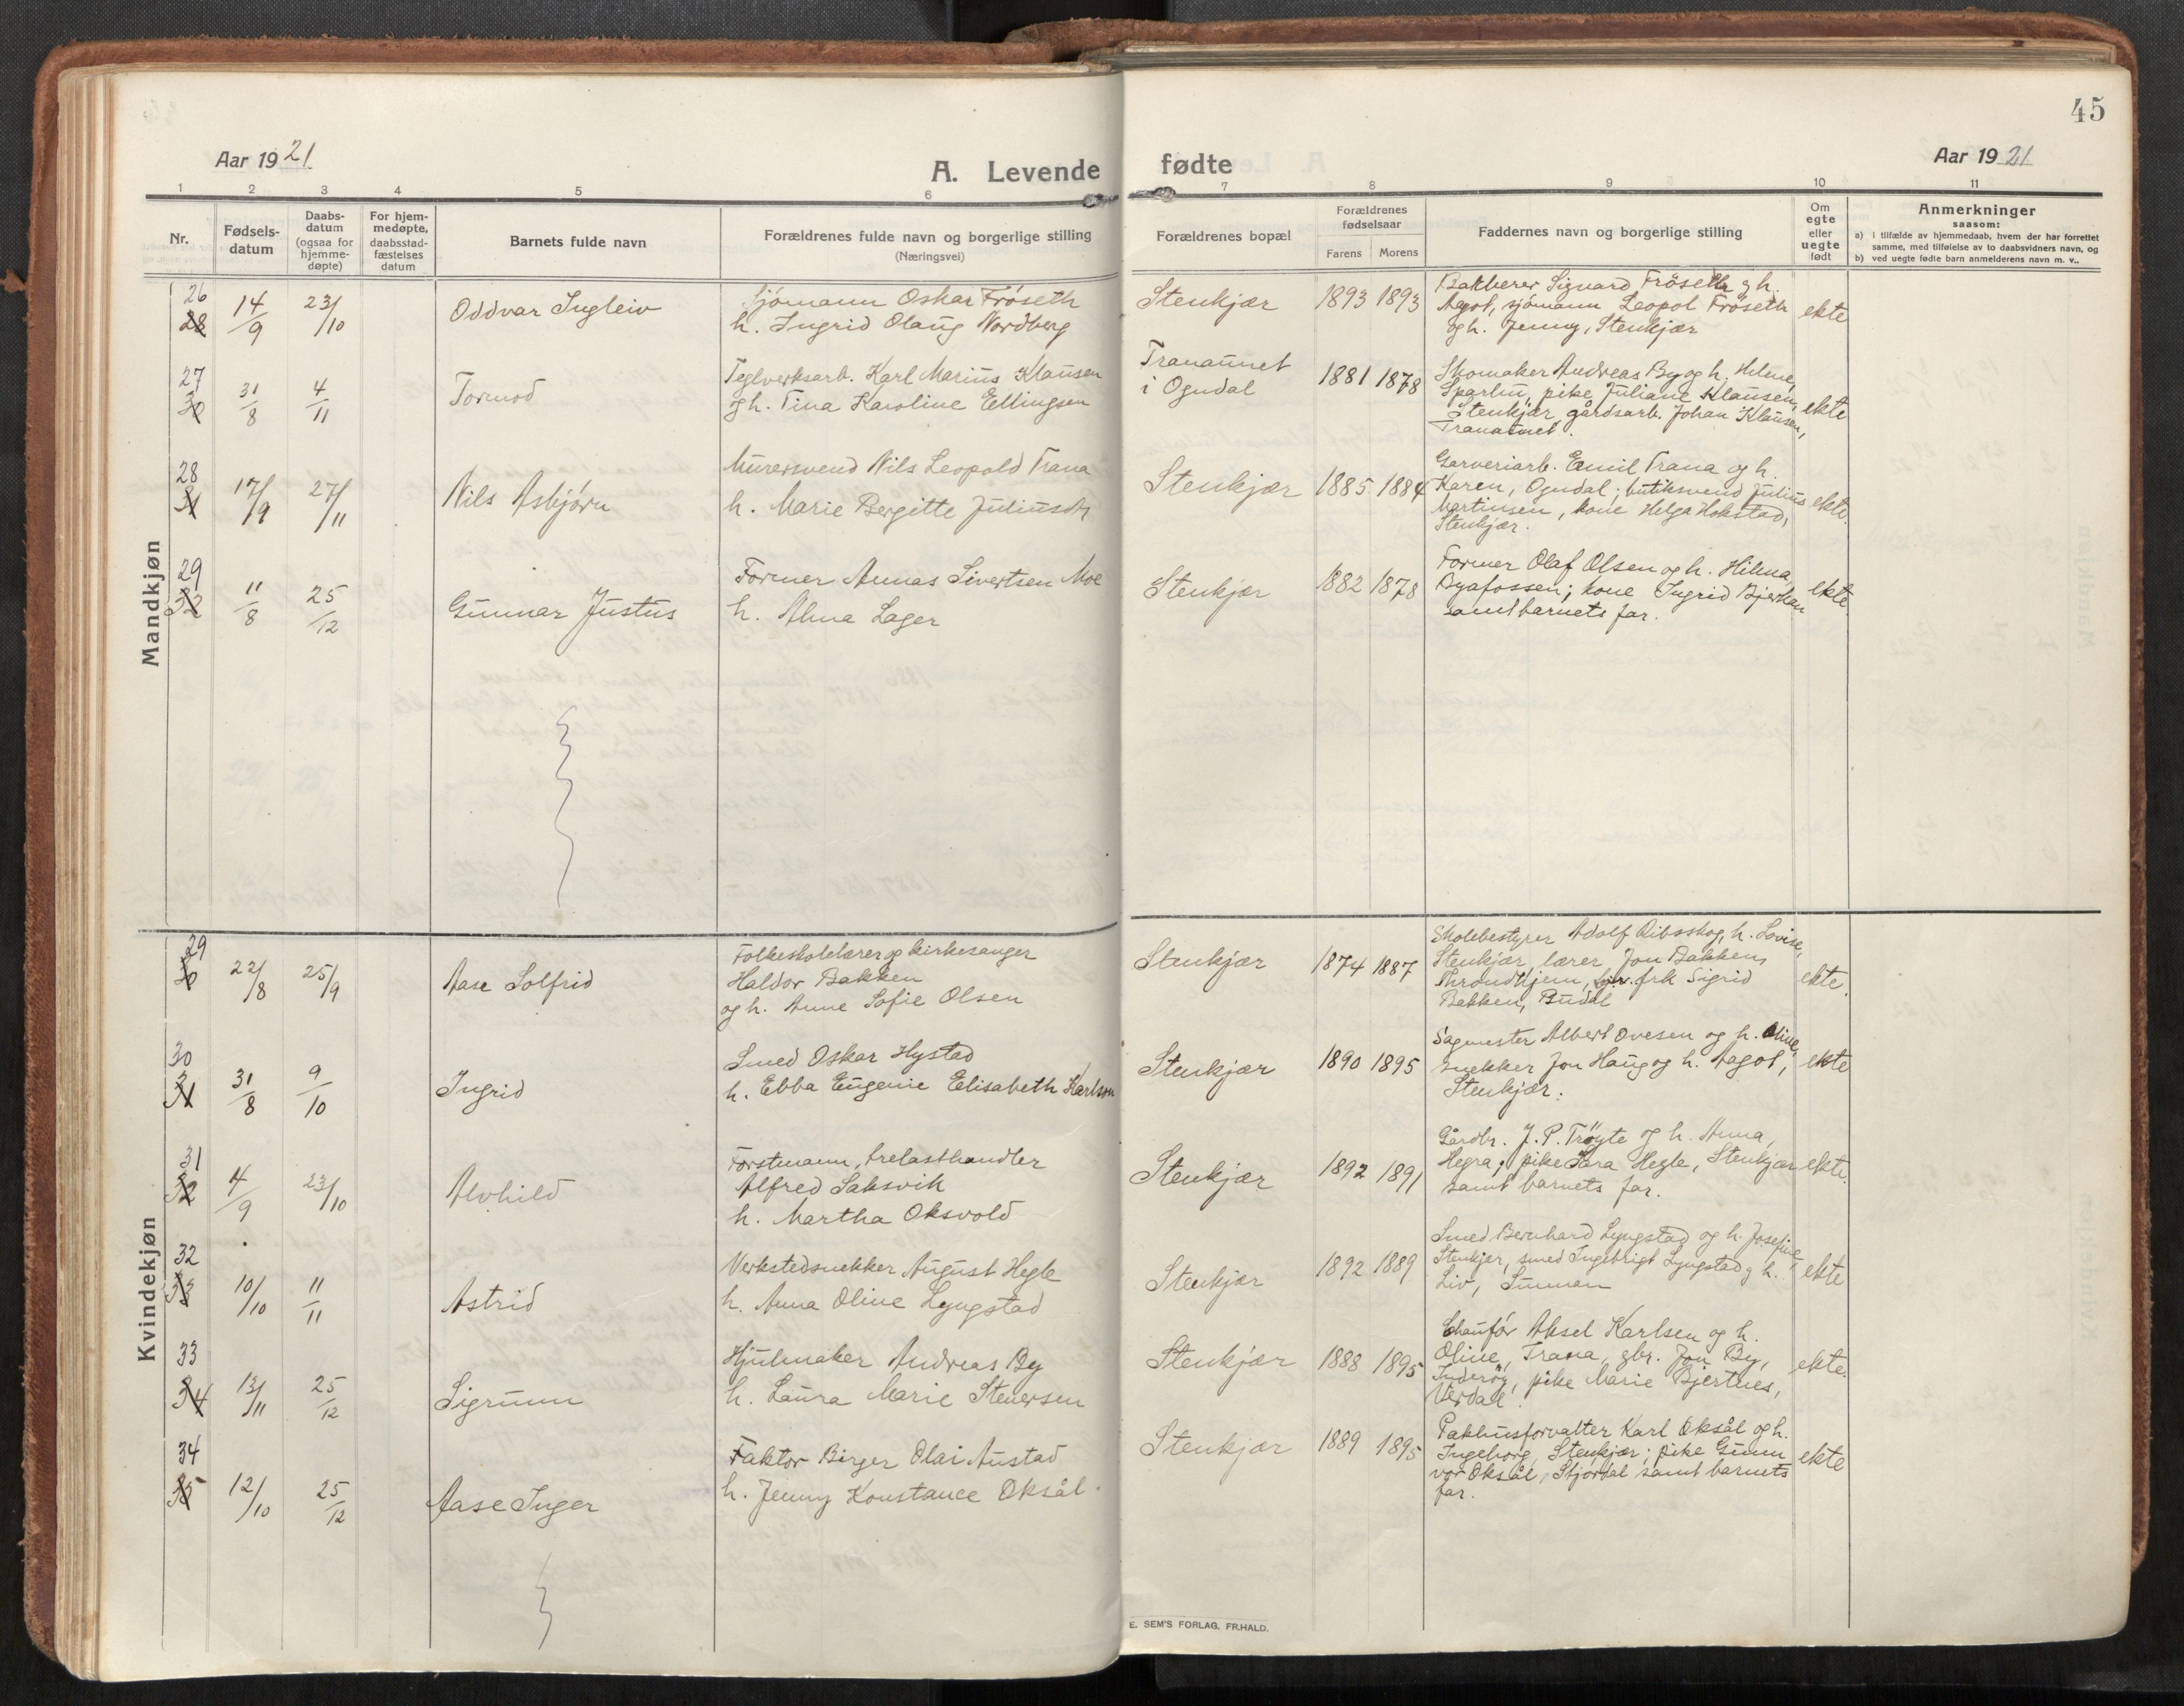 45
Aar 1921
A. Levende fødte
Aar 1921
1 2 3 4 5 6 7 8 9 10 11
Nr.
Fødsels-
datum
Daabs-
datum
(ogsaa for
hjemme-
døpte)
For hjem-
medøpte,
daabsstad-
fæstelses
datum
Barnets fulde navn
Forældrenes fulde navn og borgerlige stilling
(Næringsvei)
Forældrenes bopæl
Forældrenes
fødselsaar
Farens Morens
Faddernes navn og borgerlige stilling
Om
egte
eller
uegte
født
Anmerkninger
saasom:
a) i tilfælde av hjemmedaab, hvem der har forrettet
samme, med tilføielse av to daabsvidners navn, og
b) ved uegte fødte barn anmelderens navn m. v..
Mandkjøn
26
28
14/9 23/10
Oddvar Ingleiv
Sjömann Oskar Fröseth
h. Ingrid Olaug Nordberg
Stenkjær 1893 1893
Sigvard Fröseth og h.
Aagot, sjömann Leopol Fröseth
og h. Jenny, Stenkjær
ekte
27
30
31/8 4/11
Tormod
Teglverksarb. Karl Marius Klausen
og h. Tina Karoline Ellingsen
Tranamnet
i Ogndal
1881 1878
Skomaker Andreas By og h. Helene,
Sparbu, pike Juliane Klausen,
Stenkjær, gårdsarb. Johan Klausen,
Tranamnet.
ekte
28
31
17/9 27/11
Nils Asbjørn
Murersvend Nils Leopold Trana
h. Marie Bergitte Juliusdtr
Stenkjær 1885 1884
Garveriarb. Emil Trana og h.
Karen, Ogndal; butiksvend Julius
Martinsen, kone Helga Hokstad,
Stenkjær.
ekte.
29
32
11/8 25/12
Gunnar Justus
Former Annas Sivertsen Moe
h. Alma Lager
Stenkjær 1882 1878
Former Olaf Olsen og h. Hilma,
Byafossen; kone Ingrid Bjerkan
samt barnets far.
ekte.
Kvindekjøn
29
30
22/8 25/9
Aase Solfrid
Folkeskolelærer og kirkesanger
Haldor Bakken
og h. Anne Sofie Olsen
Stenkjær 1874 1887
Skolebestyrer Adolf Ribsskog, h. Lovise,
Stenkjær, lærer Jon Bakken,
Throndhjem, frk Sigrid
Bakken, Budal
ekte.
30
31
31/8 9/10
Ingrid
Smed Oskar Hystad
h. Ebba Eugenie Elisabeth Karlson
Stenkjær 1890 1895
Sagmester Albert Ovesen og h. Oline,
snekker Jon Haug og h. Aagot,
Stenkjær.
ekte
31
32
4/9 23/10
Alvhild
Forstmann, trelasthandler
Alfred Saksvik
h. Martha Oksvold
Stenkjær 1892 1891
Gårdbr. J. P. Tröyte og h. Anna,
Hegra; pike Sara Hegle, Stenkjær
samt barnets far.
ekte.
32
33
10/10 11/11
Astrid
Verkstedsnekker August Hegle
h. Anna Oline Lyngstad
Stenkjær 1892 1889
Smed Bernhard Lyngstad og h. Josefine,
Stenkjær, smed Ingebrigt Lyngstad og h.
Liv, Sunnan
ekte
33
34
13/11 25/12
Sigrunn
Hjulmaker Andreas By
h. Laura Marie Stenersen
Stenkjær 1888 1895
Chauför Aksel Karlsen og h.
Oline, Trana, gbr. Jon By,
Inderöy, pike Marie Bjertnes,
Verdal.
ekte.
34
35
12/10 25/12
Aase Inger
Faktor Birger Olai Austad
h. Jenny Konstance Oksål.
Stenkjær 1889 1895
Pakhusforvalter Karl Oksål og h.
Ingeborg, Stenkjær; pike Gunn
vor Oksål, Stjördal samt barnets
far.
ekte
E. SEM'S FORLAG, FR.HALD.